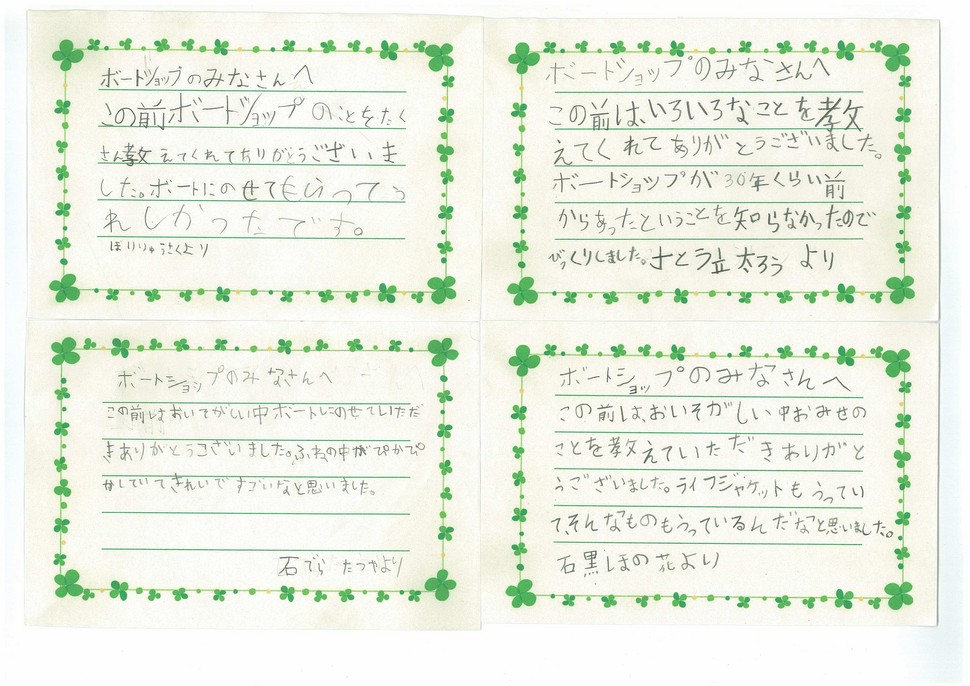 ボートショップのみなさんへ
この前ボードショップのことをたく
さん教えてくれてありがとうございま
した。ボートにのせてもらってう
れしかったです。
ほりりゅうさくより
ボートショップのみなさんへ
この前は、いろいろなことを教
えてくれてありがとうございました。
ボートショップが30年くらい前
からあったということを知らなかったので
びっくりしました。さとう立太ろうより
ボートショップのみなさんへ
この前はおいそがしい中ボートにのせていただ
きありがとうございました。ふねの中がぴかぴ
かしていてきれいですごいなと思いました。
石でらたつやより
ボートショップのみなさんへ
この前は、おいそがしい中おみせの
ことを教えていただきありがと
うございました。ライフジャケットもうってい
てそんなものもうっているんだなと思いました。
石黒ほの花より